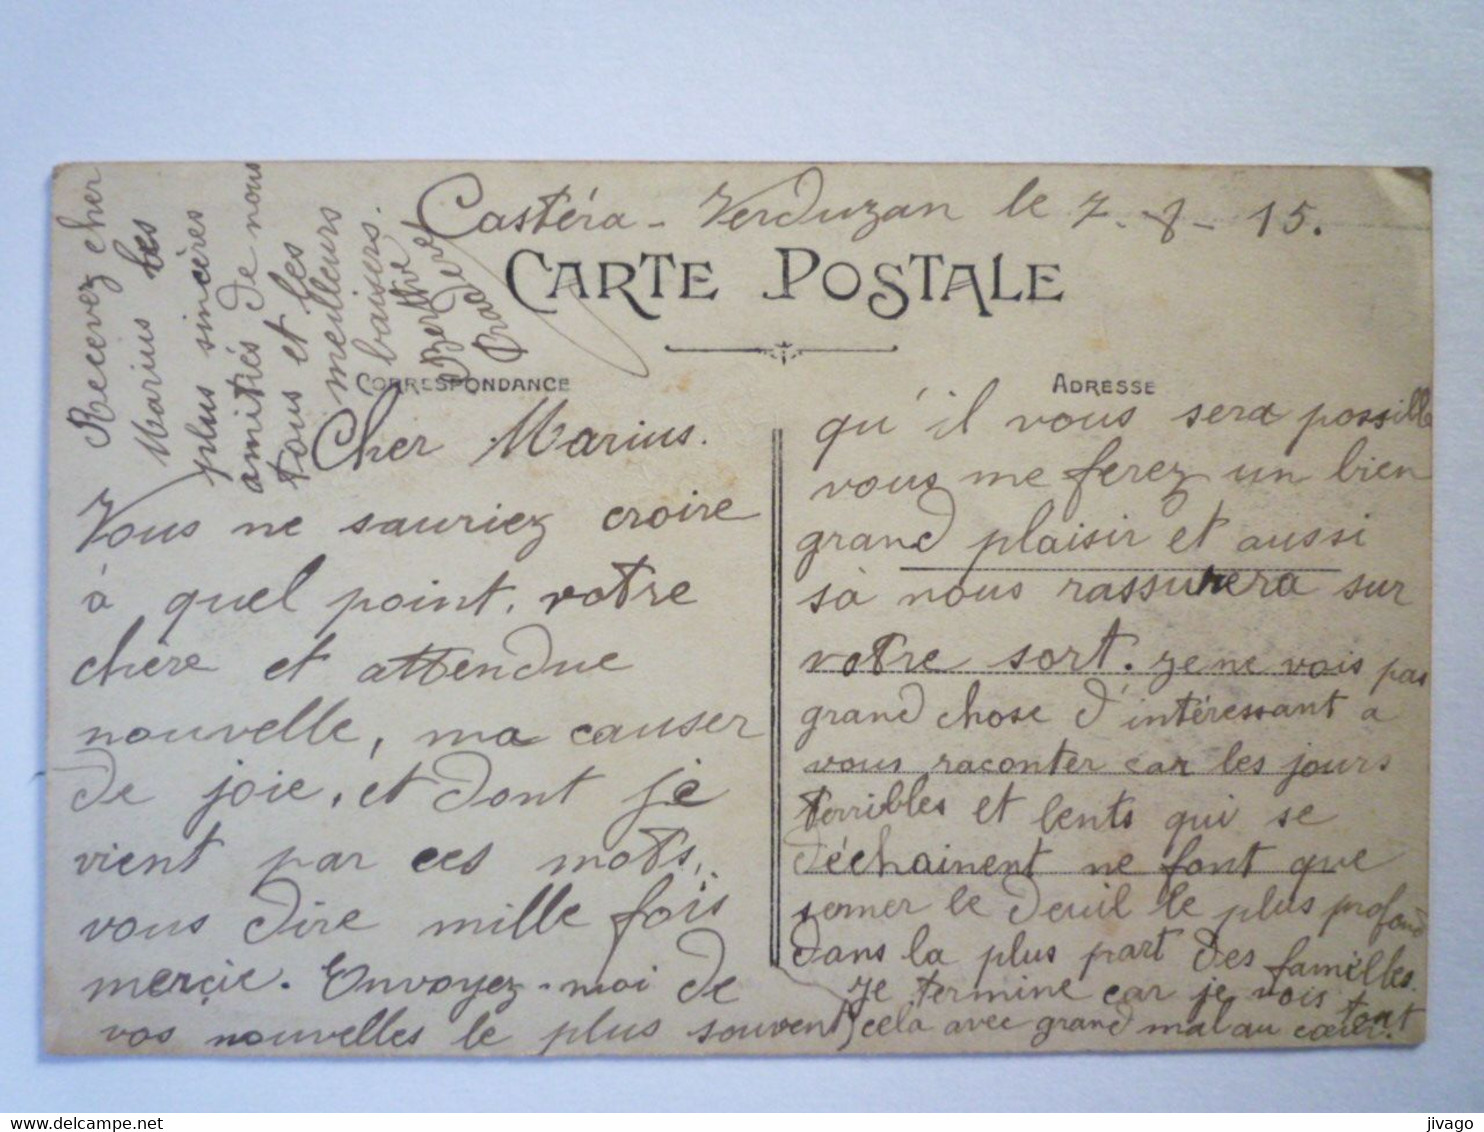 Castéra-Verduzan le 7-8-15.
CARTE POSTALE
CORRESPONDANCE
ADRESSE
Cher Marius.
Vous ne sauriez croire
à quel point, votre
chère et attendue
nouvelle, ma causer
de joie, et dont je
vient par ces mots,
vous dire mille fois
merçie. Envoyez-moi de
vos nouvelles le plus souvent
qu'il vous sera possible
vous me ferez un bien
grand plaisir et aussi
sà nous rassurera sur
votre sort. Je ne vois pas
grand chose d'intéressant a
vous raconter car les jours
terribles et lents qui se
déchainent ne font que
semer le deuil le plus profond
dans la plus part des familles.
Je termine car je vois tout
cela avec grand mal au cœur.
Recevez cher
Marius les
plus sincères
amitiés de nous
tous et les
meilleurs
baisers.
Berthe
Praderet
www.delcampe.net
jivago